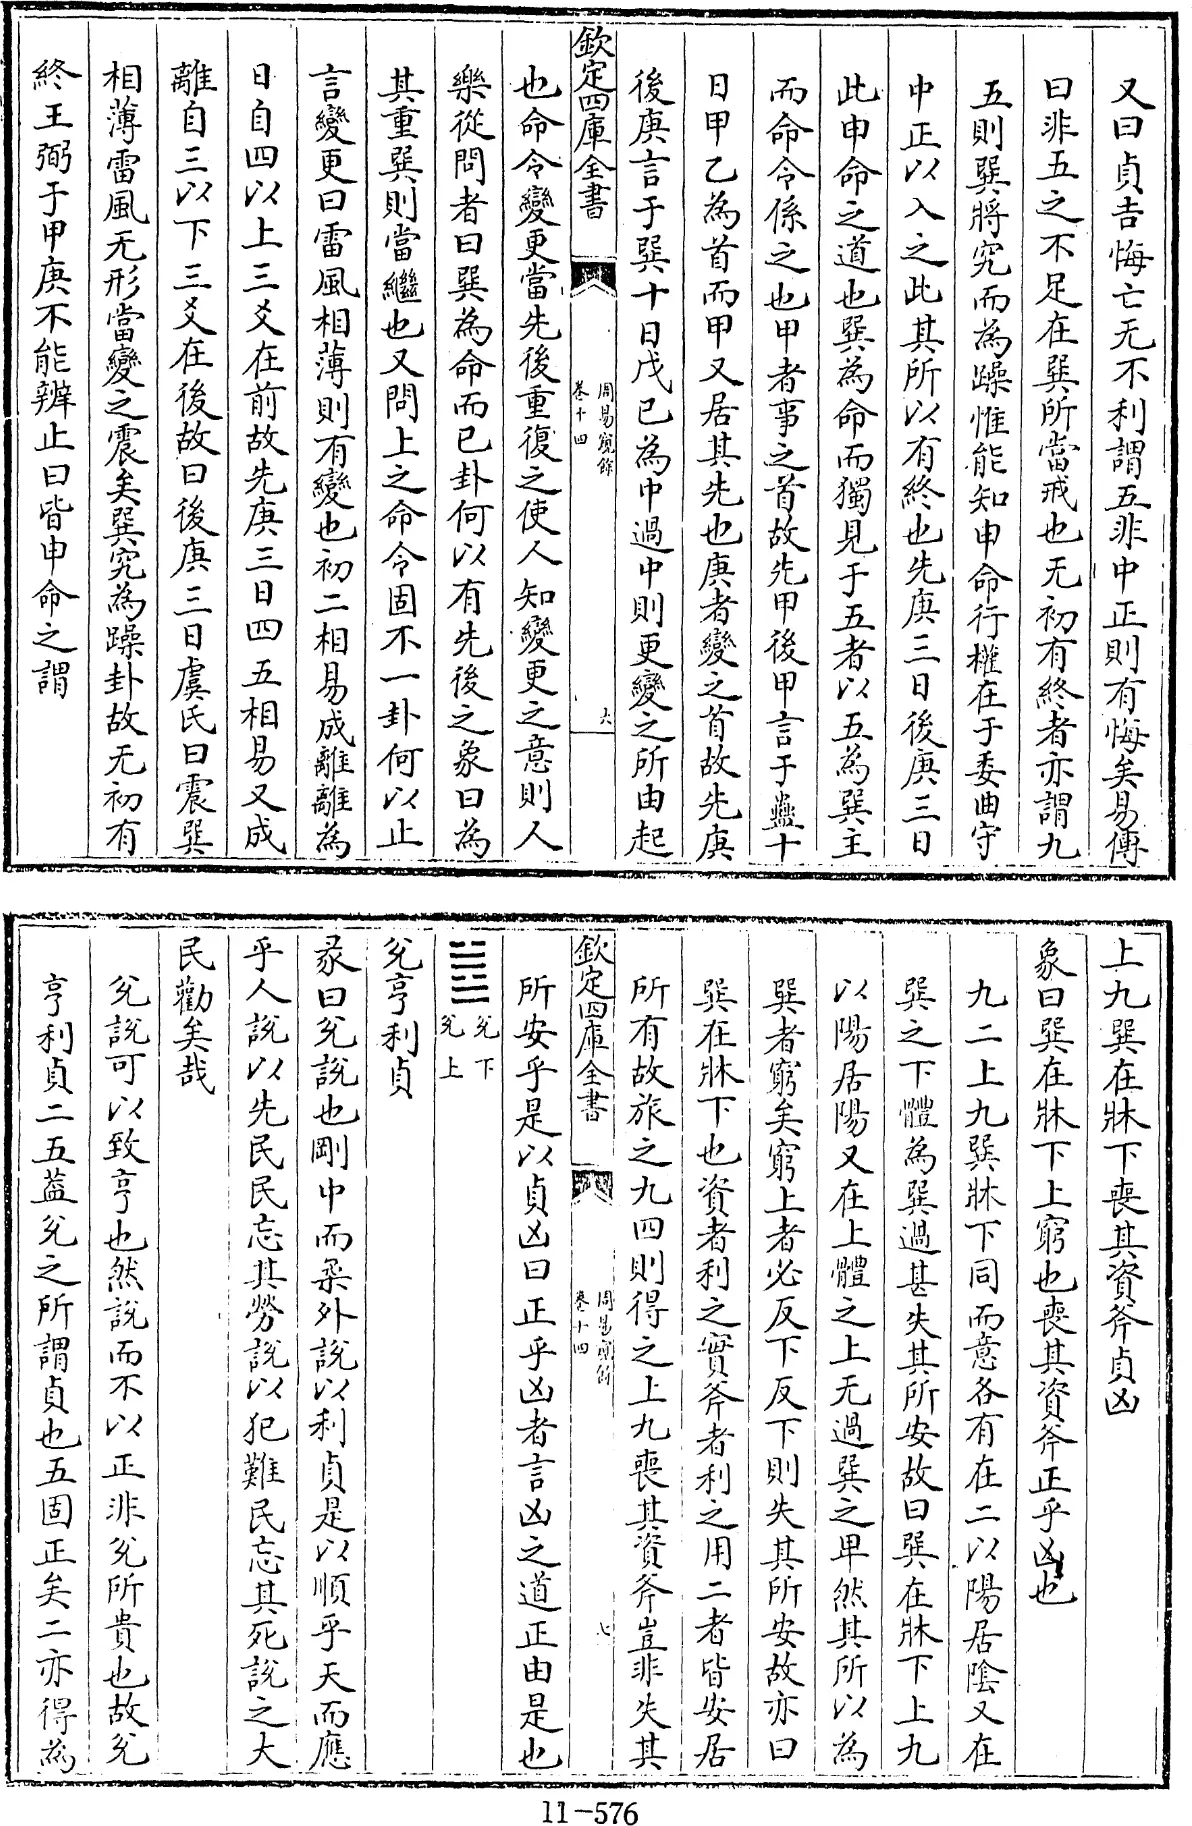 又曰貞吉悔亡无不利謂五非中正則有悔矣易傳
曰非五之不足在巽所當戒也无初有終者亦謂九
五則巽將究而為躁惟能知申命行權在于委曲守
中正以入之此其所以有終也先庚三日後庚三日
此申命之道也巽為命而獨見于五者以五為巽主
而命令係之也甲者事之首故先甲後甲言于蠱十
日甲乙為首而甲又居其先也庚者變之首故先庚
後庚言于巽十日戊己為中過中則更變之所由起
欽定四庫全書
周易窺餘
卷十四
六
也命令變更當先後重復之使人知變更之意則人
樂從問者曰巽為命而已卦何以有先後之象曰為
其重巽則當繼也又問上之命令固不一卦何以止
言變更曰雷風相薄則有變也初二相易成離離為
日自四以上三爻在前故先庚三日四五相易又成
離自三以下三爻在後故曰後庚三日虞氏曰震巽
相薄雷風无形當變之震矣巽究為躁卦故无初有
終王弼于甲庚不能辨止曰皆申命之謂
上九巽在牀下喪其資斧貞凶
象曰巽在牀下上窮也喪其資斧正乎凶也
九二上九巽牀下同而意各有在二以陽居陰又在
巽之下體為巽過甚失其所安故曰巽在牀下上九
以陽居陽又在上體之上无過巽之卑然其所以為
巽者窮矣窮上者必反下反下則失其所安故亦曰
巽在牀下也資者利之實斧者利之用二者皆安居
所有故旅之九四則得之上九喪其資斧豈非失其
欽定四庫全書
周易窺餘
卷十四
七
所安乎是以貞凶曰正乎凶者言凶之道正由是也
䷹
兌下
兌上
兌亨利貞
彖曰兌說也剛中而柔外說以利貞是以順乎天而應
乎人說以先民民忘其勞說以犯難民忘其死說之大
民勸矣哉
兌說可以致亨也然說而不以正非兌所貴也故兌
亨利貞二五蓋兌之所謂貞也五固正矣二亦得為
11-576